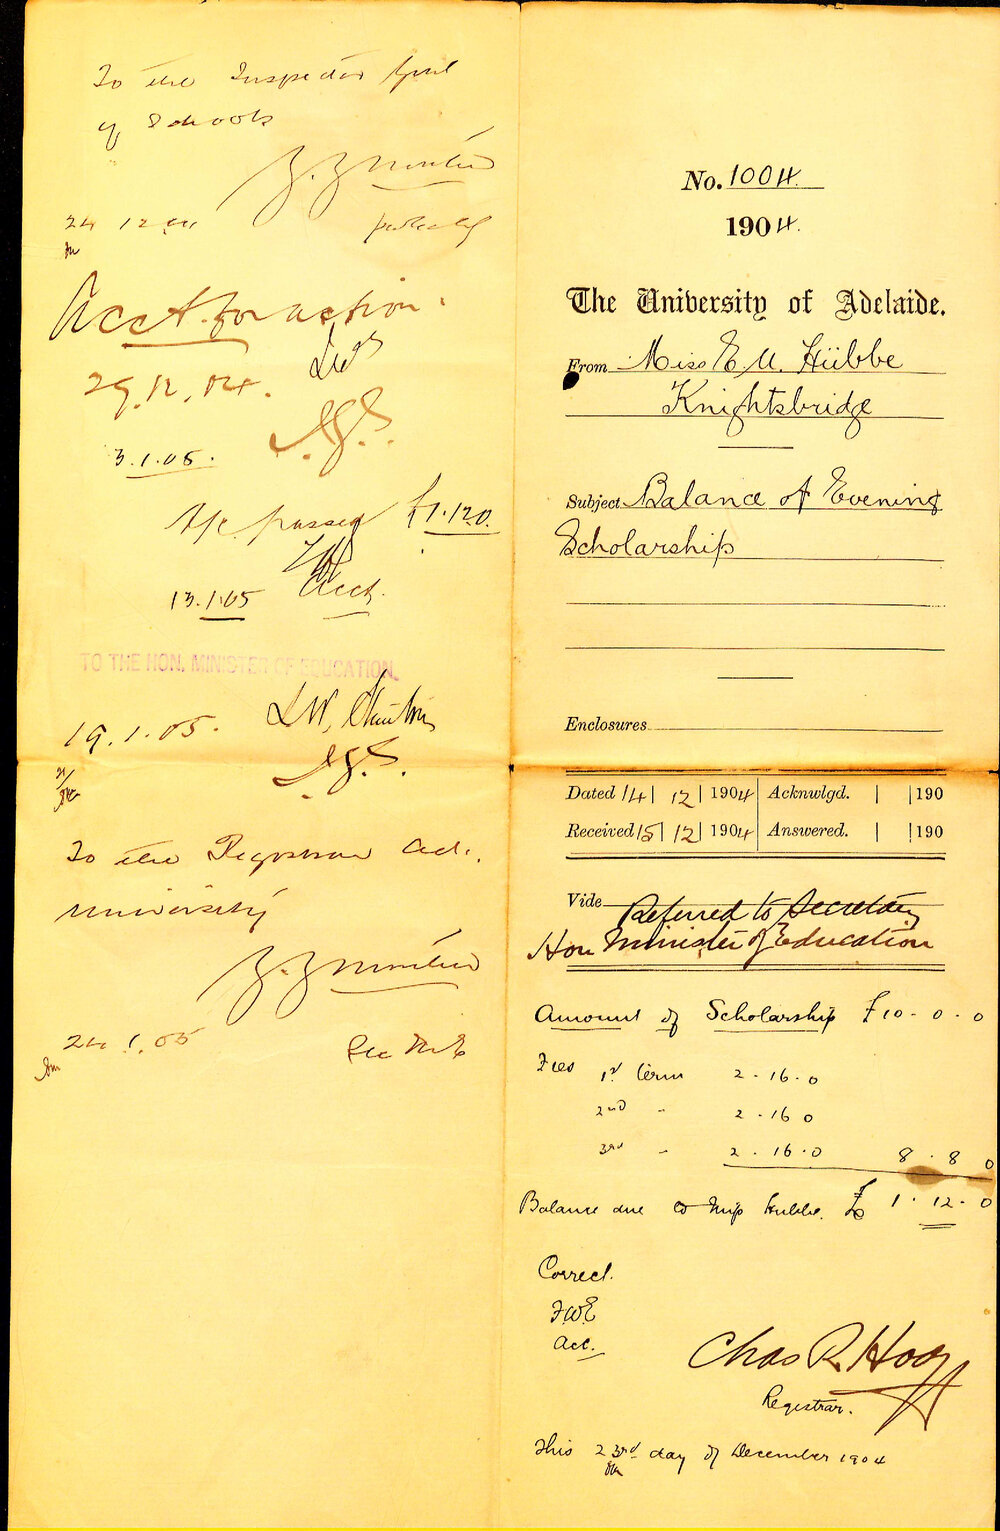 To the Inspector Genl
of Schools
24 12 04
Acct. for action.
29.12.04.
3.1.05.
A/c passed £1.12.0.
Acct.
13.1.05
TO THE HON. MINISTER OF EDUCATION.
19.1.05.
To the Registrar Adel.
University
24.1.05
Sec M E
No. 1004.
1904.
The University of Adelaide.
From Miss E. U. Hübbe
Knightsbridge
Subject Balance of Evening
Scholarship
Enclosures
Dated 14| 12| 1904 Acknwlgd. | |190
Received 15| 12| 1904 Answered. | |190
Vide Referred to Secretary
Hon Minister of Education
Amount of Scholarship £10 - 0 - 0
Fees 1st term 2 - 16 - 0
2nd " 2 - 16 0
3rd " 2 - 16 - 0 8 - 8 0
Balance due to Miss Hubbe. £ 1 - 12 - 0
Correct.
F.W.E
Act.
Chas R. Hodge
Registrar.
This 23rd day of December 1904